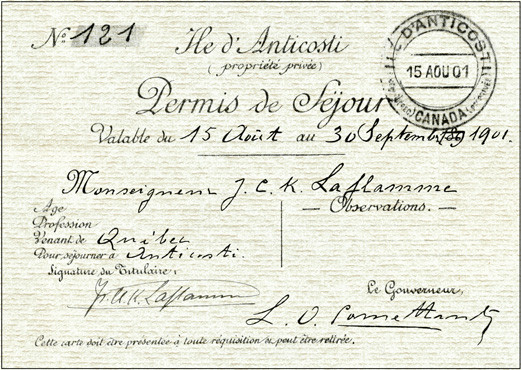 No 121
Ile d'Anticosti
(propriété privée)
ILE D'ANTICOSTI
15 AOU 01
CANADA
Permis de Séjour
Valable du 15 Août au 30 Septembre 1901.
Monseigneur J. C. K. Laflamme
Age
Profession
— Observations. —
Venant de Québec
Pour séjourner à Anticosti.
Signature du Titulaire:
J. C. K. Laflamme
Le Gouverneur,
L. O. Comettant
Cette carte doit être présentée à toute réquisition & peut être retirée.